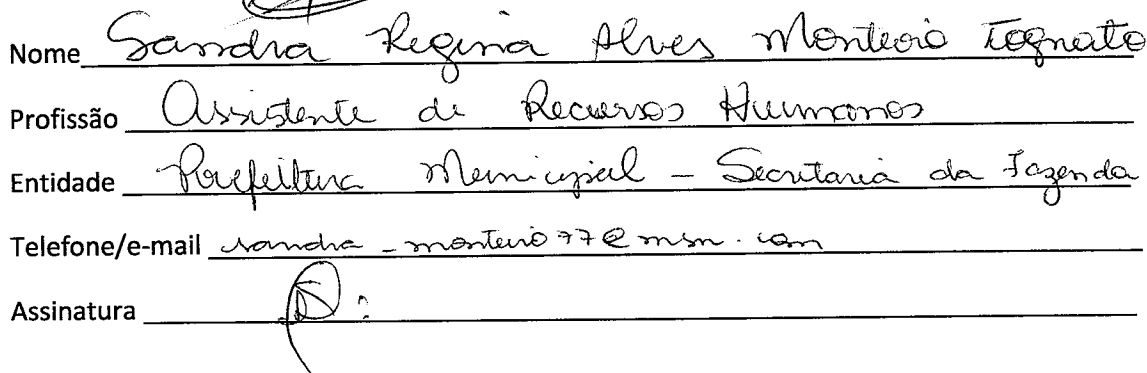 Nome Sandra Regina Alves Monteiro Tognato
Profissão Assistente de Recursos Humanos
Entidade Prefeitura Municipal - Secretaria da Fazenda
Telefone/e-mail sandra_monteiro77@msn.com
Assinatura